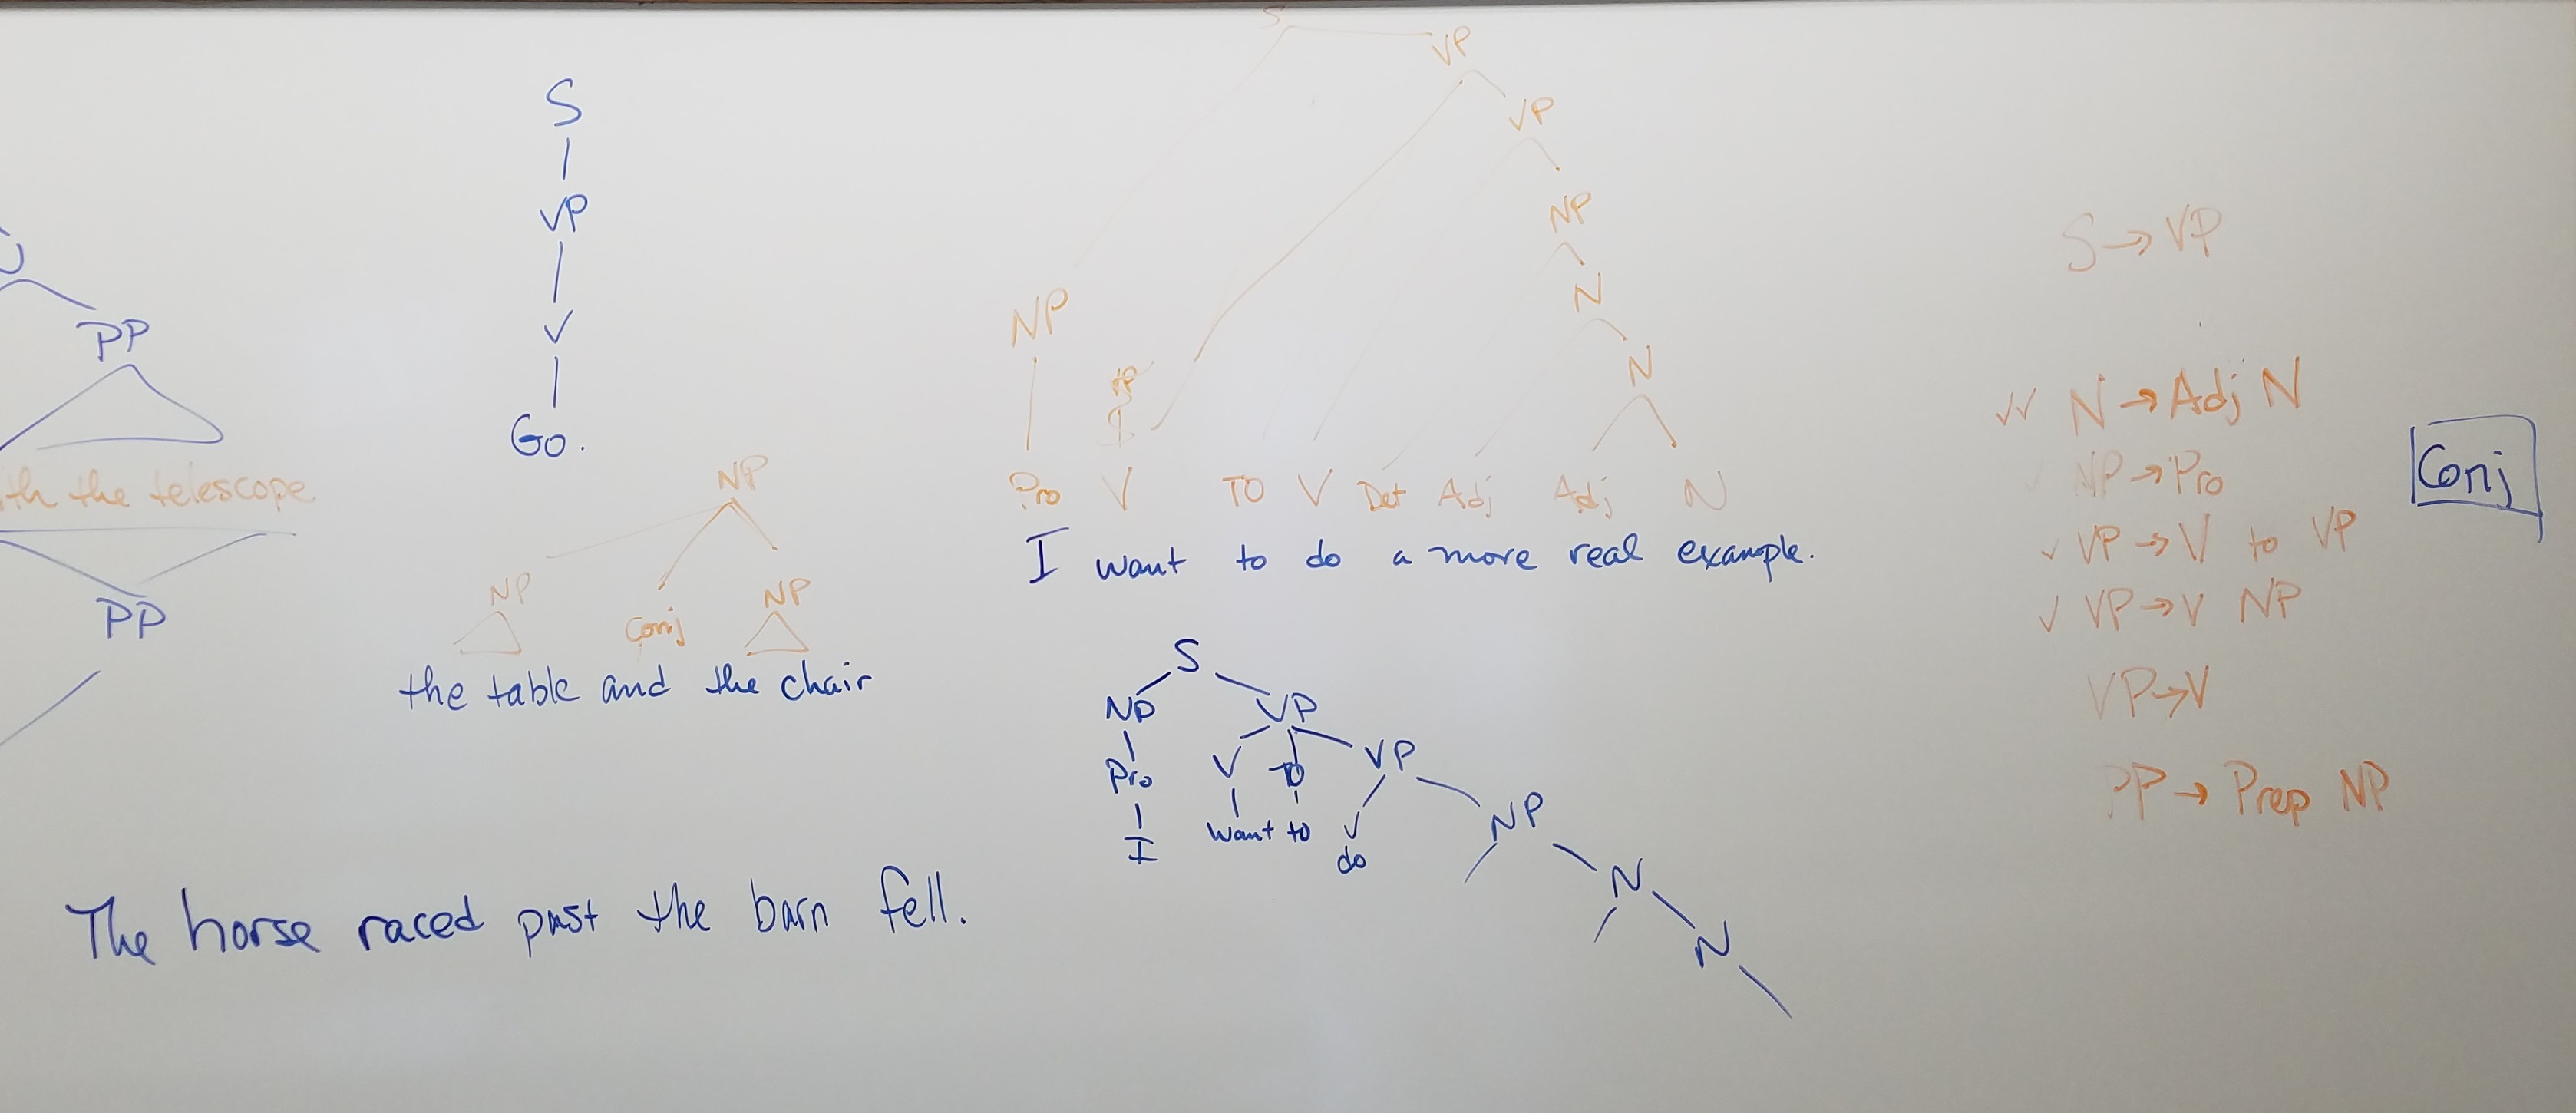 S
VP
V
Go.
PP
th the telescope
PP
NP
NP Conj NP
the table and the chair
The horse raced past the barn fell.
S
VP
VP
NP
N
N
NP
Pro V TO V Det Adj Adj N
I want to do a more real example.
S
NP VP
Pro V TO VP
I want to V NP
do
N
N
S → VP
✓✓ N → Adj N
NP → Pro
✓ VP → V to VP
✓ VP → V NP
VP → V
PP → Prep NP
Conj